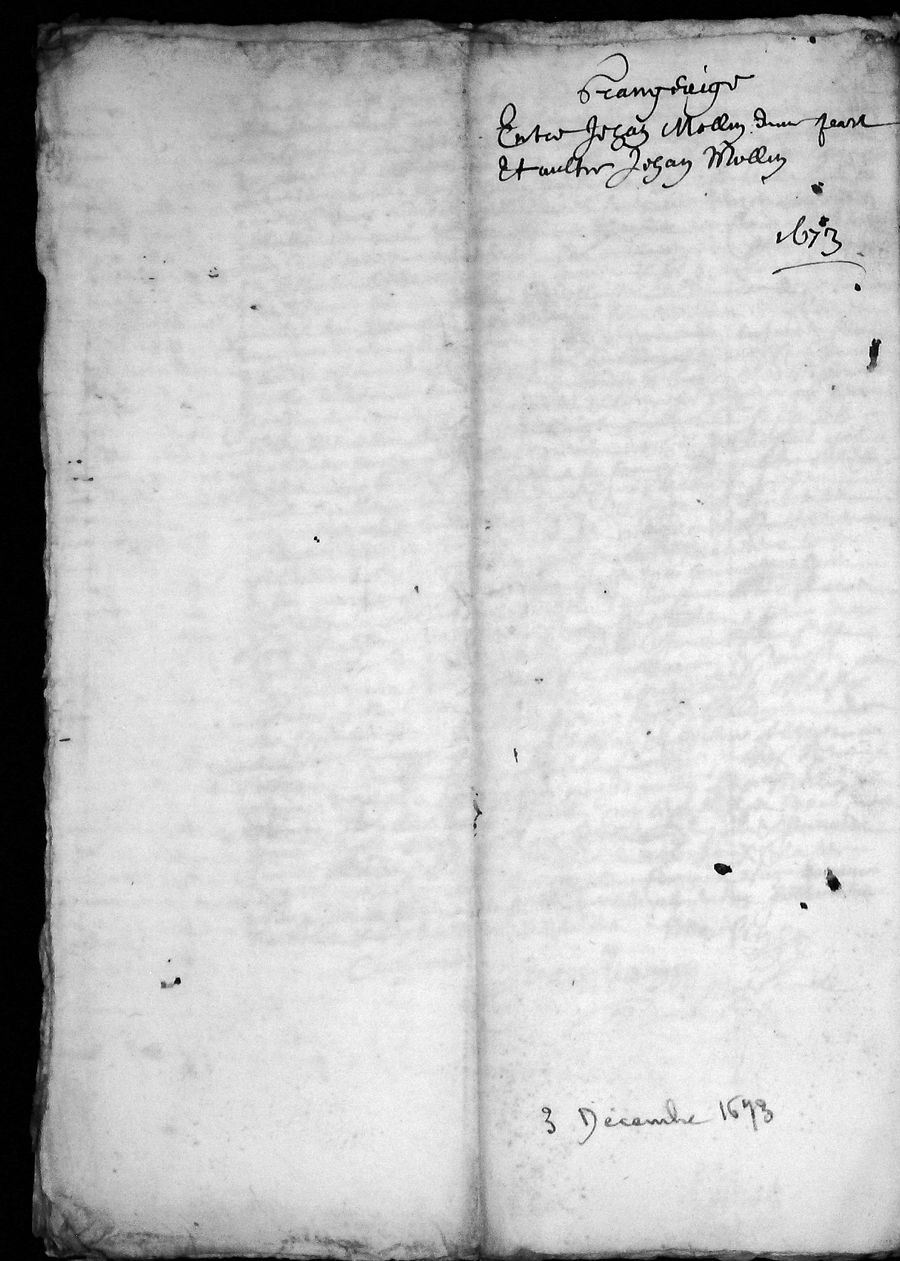 Transeige
Entre Jehan Mollin dune part
Et aultre Jehan Mollin
1673
3 Décembre 1673